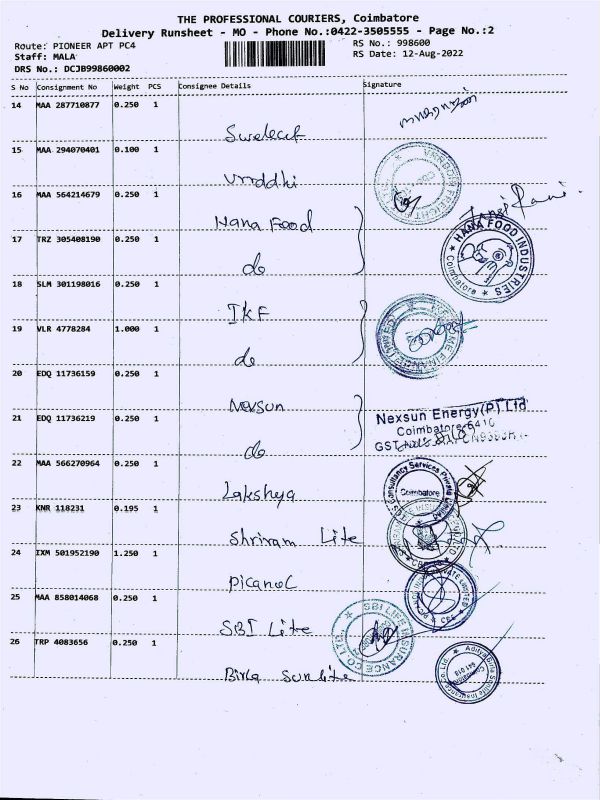 THE PROFESSIONAL COURIERS, Coimbatore
Delivery Runsheet - MO - Phone No.:0422-3505555 - Page No.:2
Route: PIONEER APT PC4
RS No.: 998600
Staff: MALA
RS Date: 12-Aug-2022
DRS No.: DCJB99860002
S No Consignment No Weight PCS Consignee Details Signature
14 MAA 287710877 0.250 1
Swelect
15 MAA 294070401 0.100 1
Vrrddhi
16 MAA 564214679 0.250 1
Hana Food
17 TRZ 305408190 0.250 1
do
HANA FOOD INDUSTRIES
Coimbatore
18 SLM 301198016 0.250 1
IKF
19 VLR 4778284 1.000 1
do
20 EDQ 11736159 0.250 1
Nexsun
Nexsun Energy(P) Ltd
21 EDQ 11736219 0.250 1
Coimbatore
GST
do
22 MAA 566270964 0.250 1
Lakshya
Consultancy Services Private
Coimbatore
23 KNR 118231 0.195 1
Shriram Life
24 IXM 501952190 1.250 1
Picanol
25 MAA 858014068 0.250 1
SBI Life
SBI LIFE INSURANCE CO. LTD
26 TRP 4083656 0.250 1
Birla Sunlife
Aditya Birla Sunlife Insurance Co. Ltd.
Coimbatore
641 018